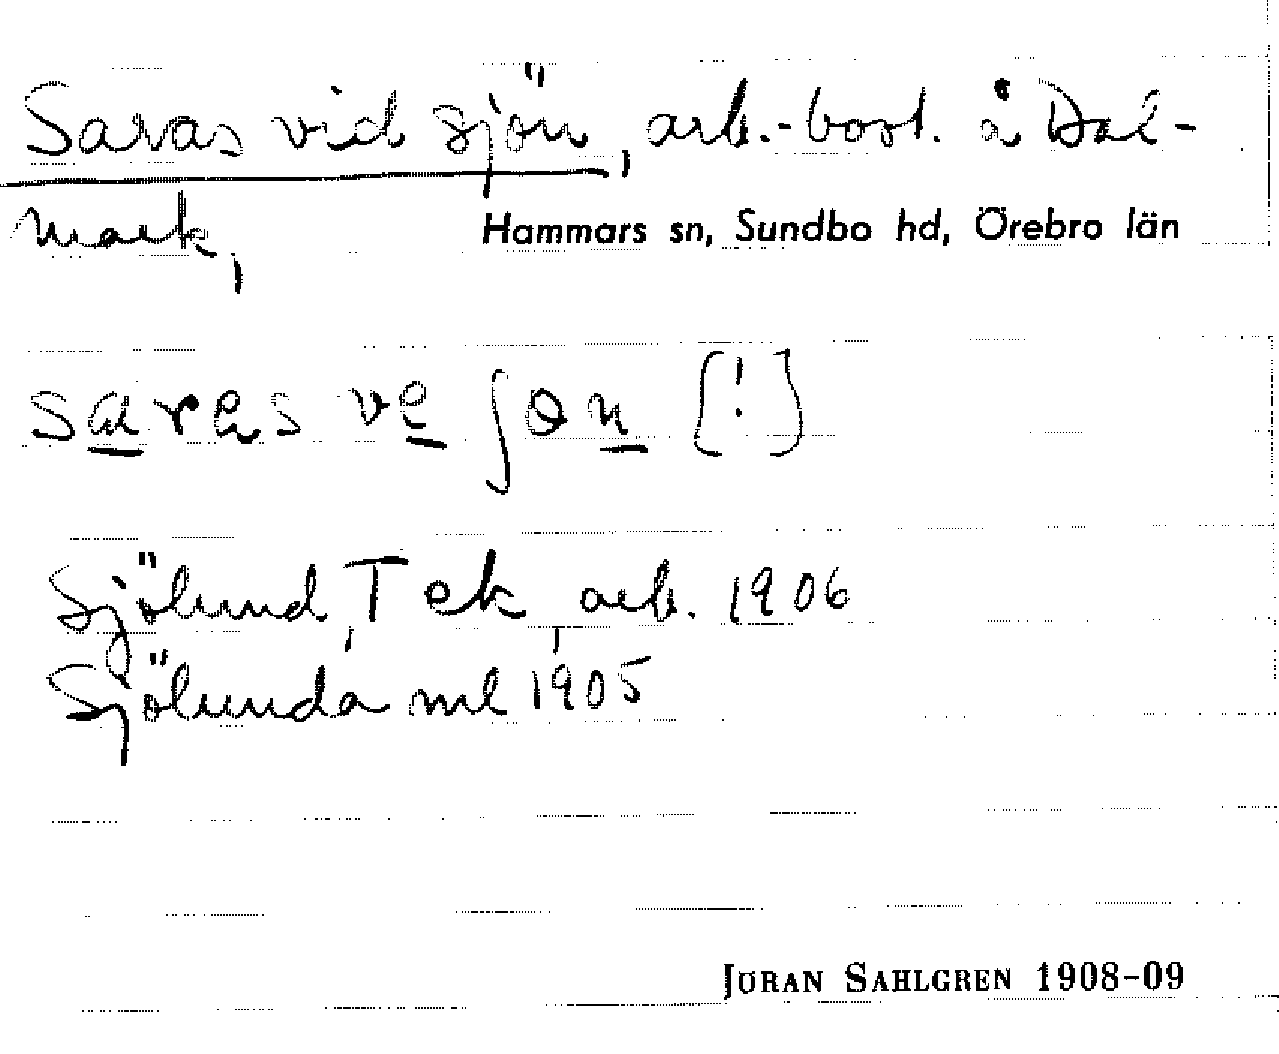 Saras vid sjön, arb.-bost. å Dal-
mark,
Hammars sn, Sundbo hd, Örebro län
sarɐs ve ʃɵn [!]
Sjölund, T ek, arb. 1906
Sjölunda ml 1905
JÖRAN SAHLGREN 1908-09